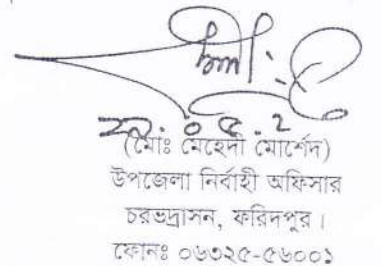 (মোঃ মেহেদী মোর্শেদ)
উপজেলা নির্বাহী অফিসার
চরভদ্রাসন, ফরিদপুর।
ফোনঃ ০৬৩২৫-৫৬০০১